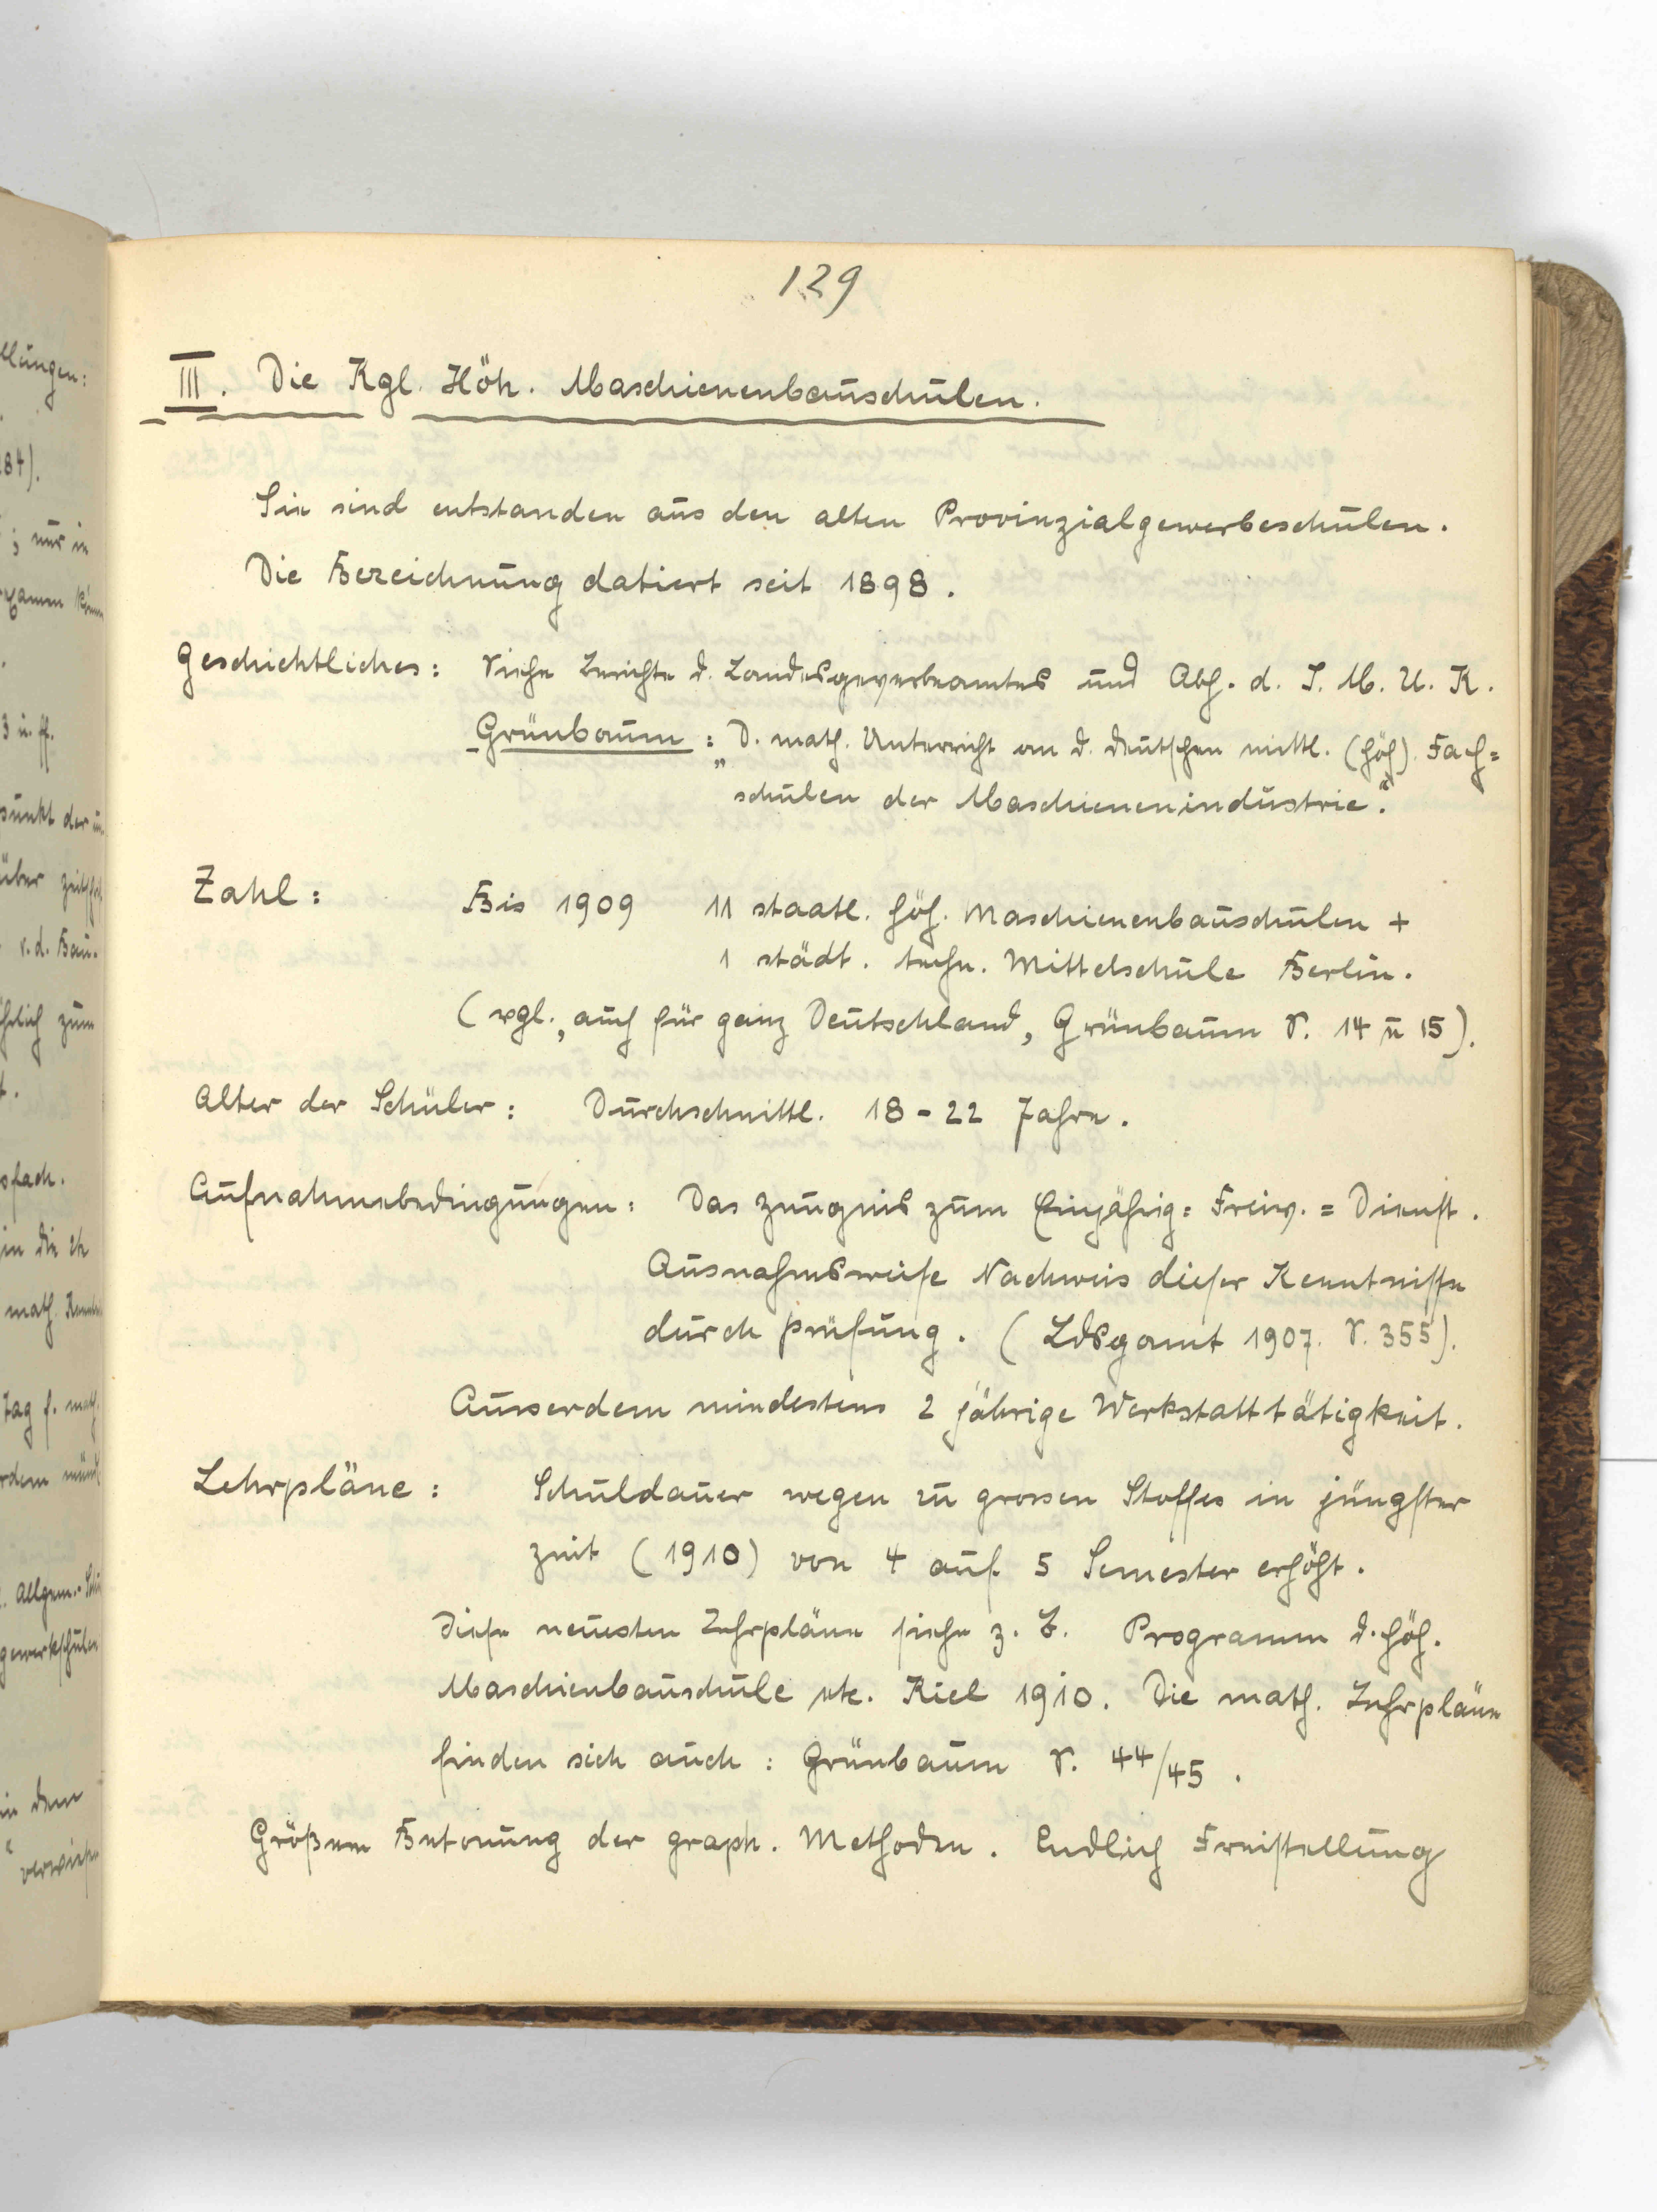 129
III. Die Kgl. Höh. Maschienenbauschulen.
Sie sind entstanden aus den alten Provinzialgewerbeschulen.
Die Bezeichnung datiert seit 1898.
Geschichtliches: Siehe Berichte d. Landesgewerbeamtes und Abh. d. I. M. U. K.
Grünbaum: „D. math. Unterricht an d. deutschen mittl. (höh). Fach=
schulen der Maschienenindustrie“.
Zahl: Bis 1909 11 staatl. höh. Maschienenbauschulen +
1 städt. techn. Mittelschule Berlin.
(vgl., auch für ganz Deutschland, Grünbaum S. 14 u 15).
Alter der Schüler: Durchschnittl. 18-22 Jahre.
Aufnahmebedingungen: Das Zeugnis zum Einjährig= Freiw.= Dienst.
Ausnahmsweise Nachweis dieser Kenntnisse
durch Prüfung. (Ldsgamt 1907. S. 355).
Ausserdem mindestens 2 jährige Werkstatttätigkeit.
Lehrpläne: Schuldauer wegen zu grossen Stoffes in jüngster
Zeit (1910) von 4 auf 5 Semester erhöht.
Diese neuesten Lehrpläne siehe z. B. Programm d. höh.
Maschienbauschule etc. Kiel 1910. Die math. Lehrpläne
finden sich auch: Grünbaum S. 44/45.
Größere Betonung der graph. Methoden. Endlich Freistellung